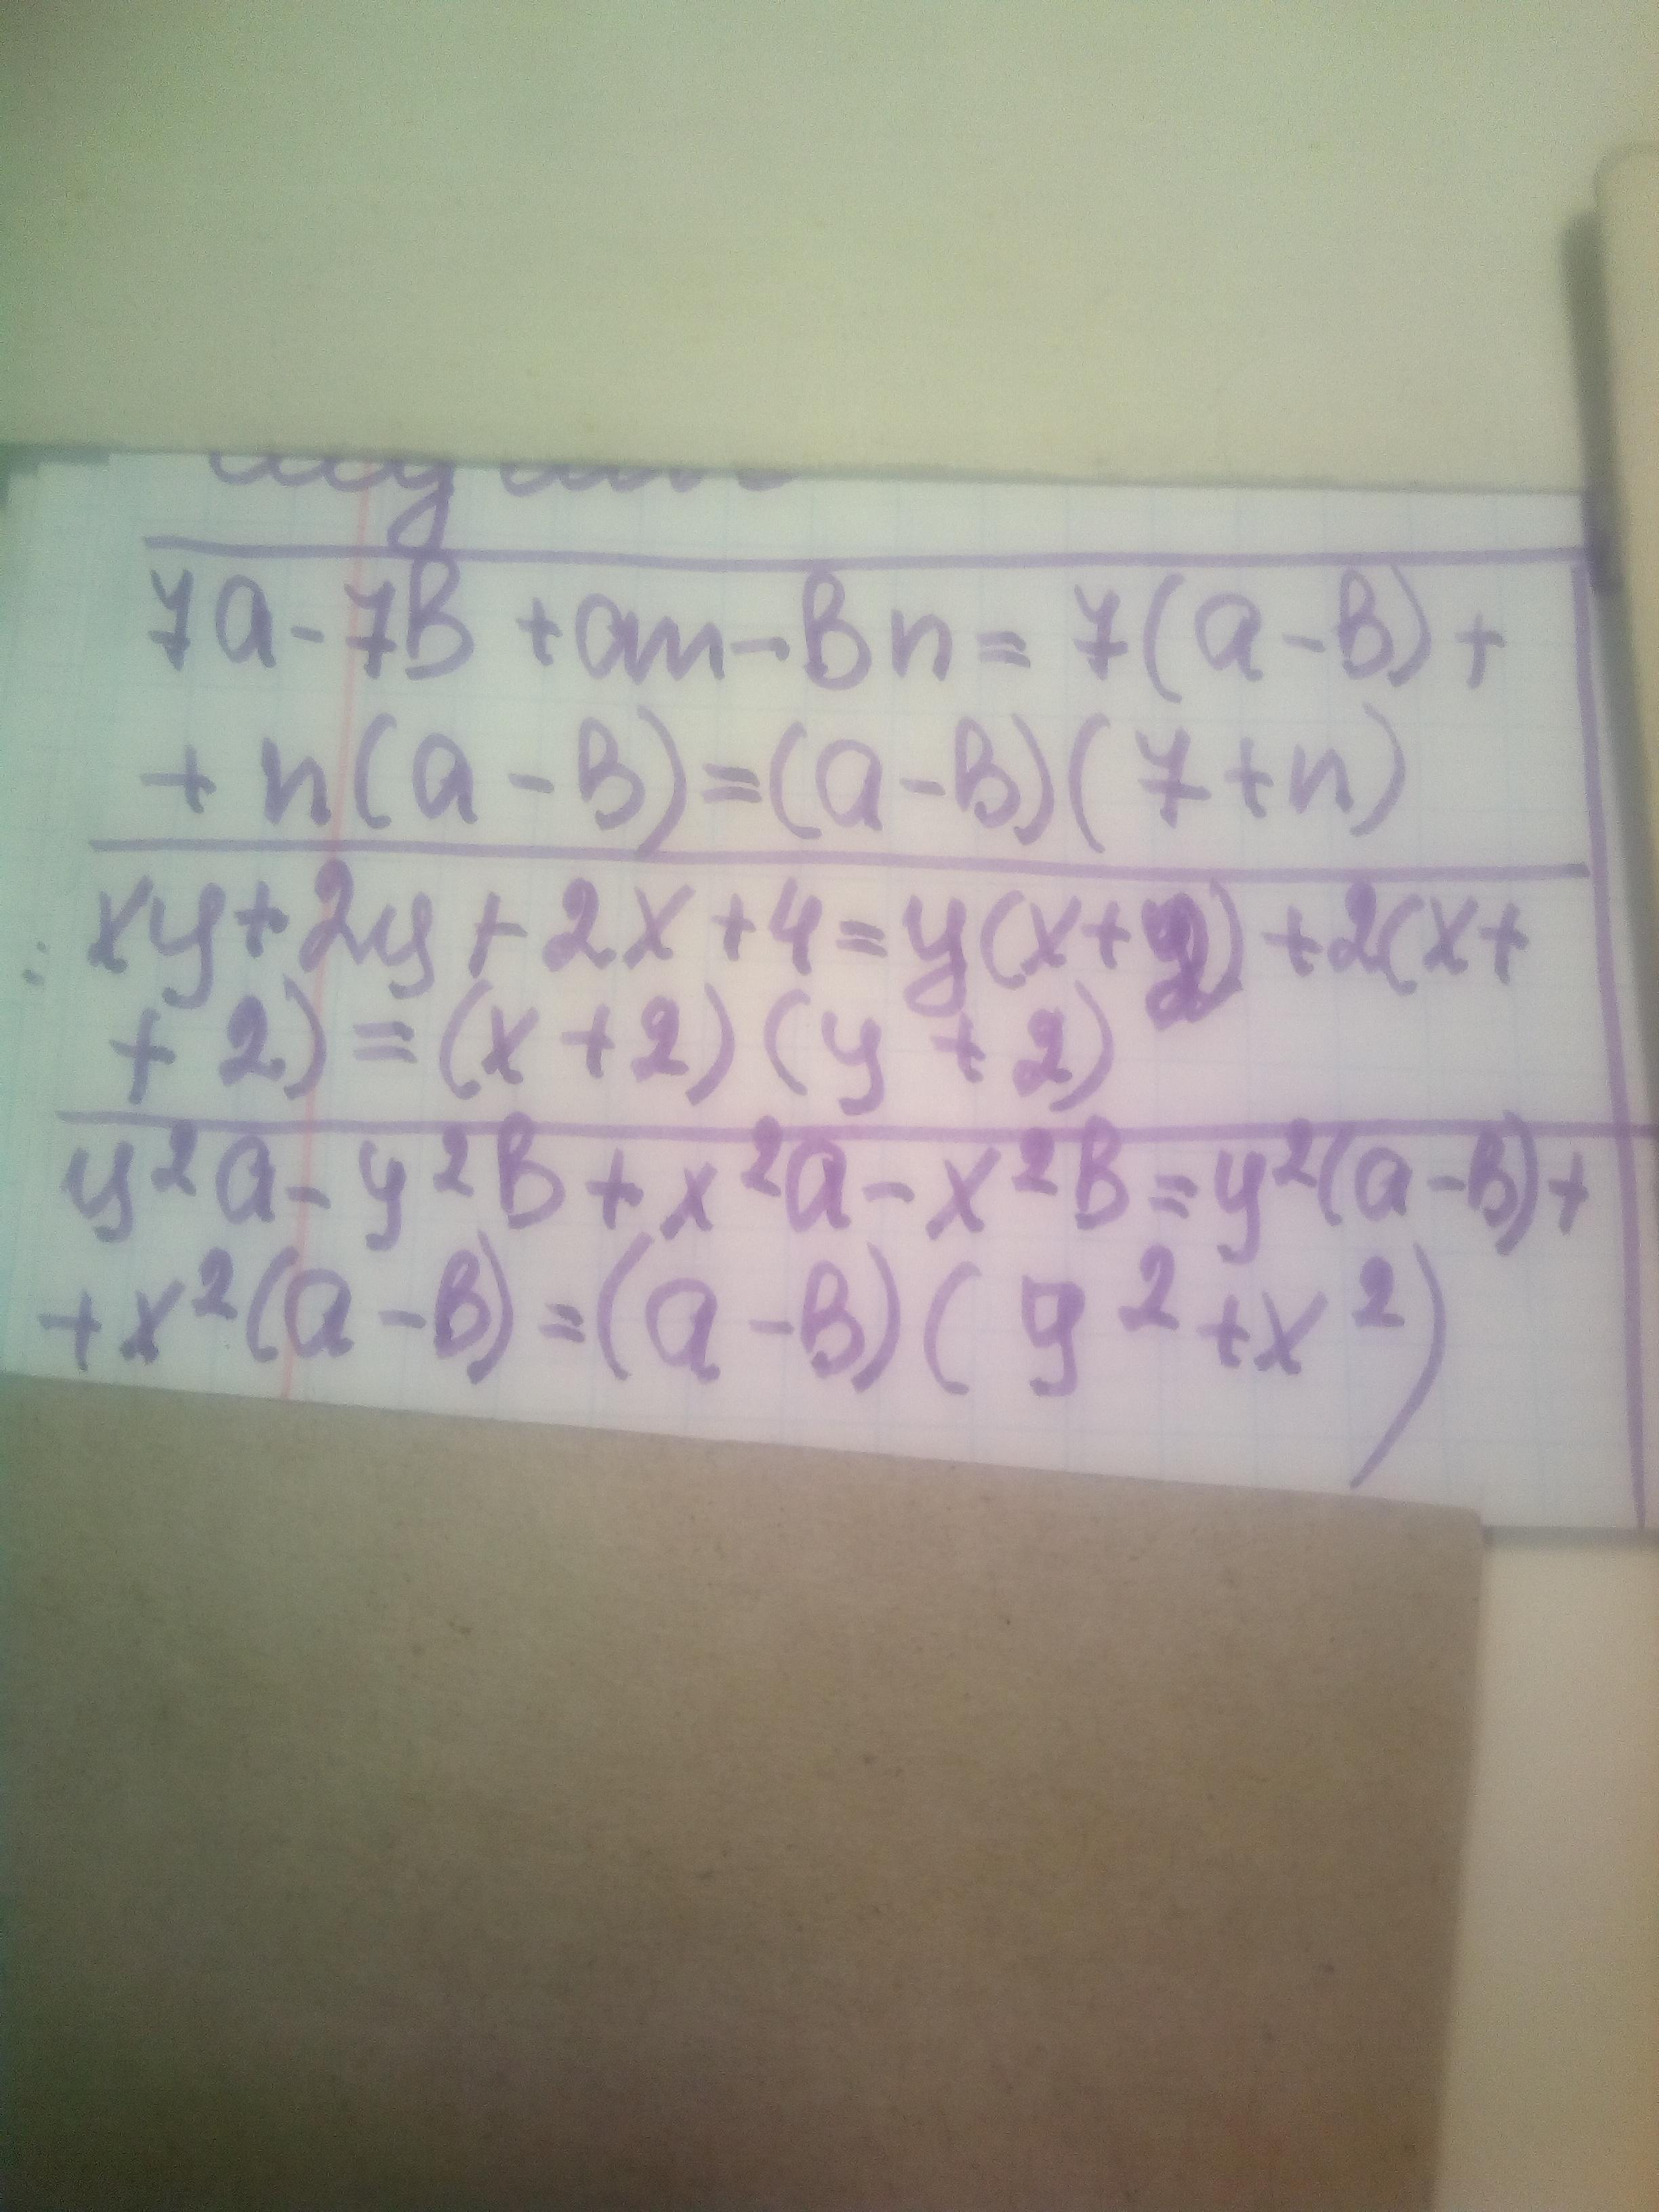 7a-7B+an-Bn=7(a-B)+
+n(a-B)=(a-B)(7+n)
xy+2y+2x+4=y(x+2)+2(x+
+2)=(x+2)(y+2)
y²a-y²B+x²a-x²B=y²(a-B)+
+x²(a-B)=(a-B)(y²+x²)